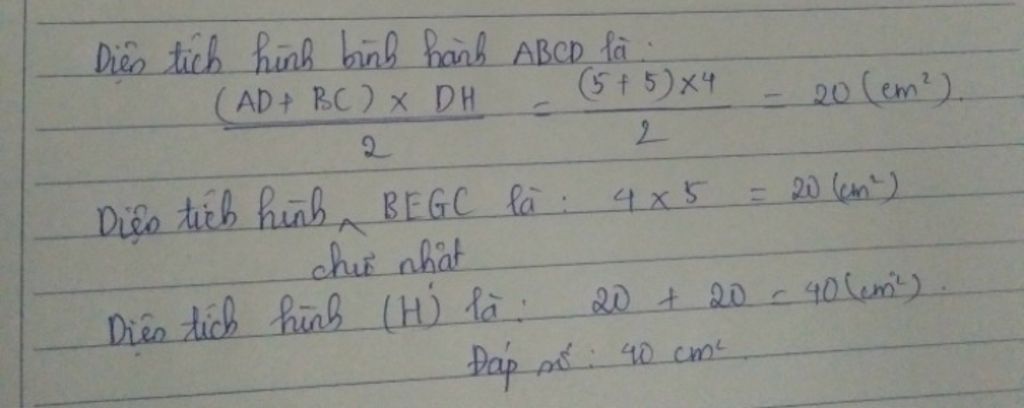 Diện tích hình bình hành ABCD là:
(AD + BC) × DH / 2 = (5 + 5) × 4 / 2 = 20 (cm²).
Diện tích hình ^ BEGC là: 4 × 5 = 20 (cm²)
chữ nhật
Diện tích hình (H) là: 20 + 20 = 40 (cm²).
Đáp số: 40 cm²